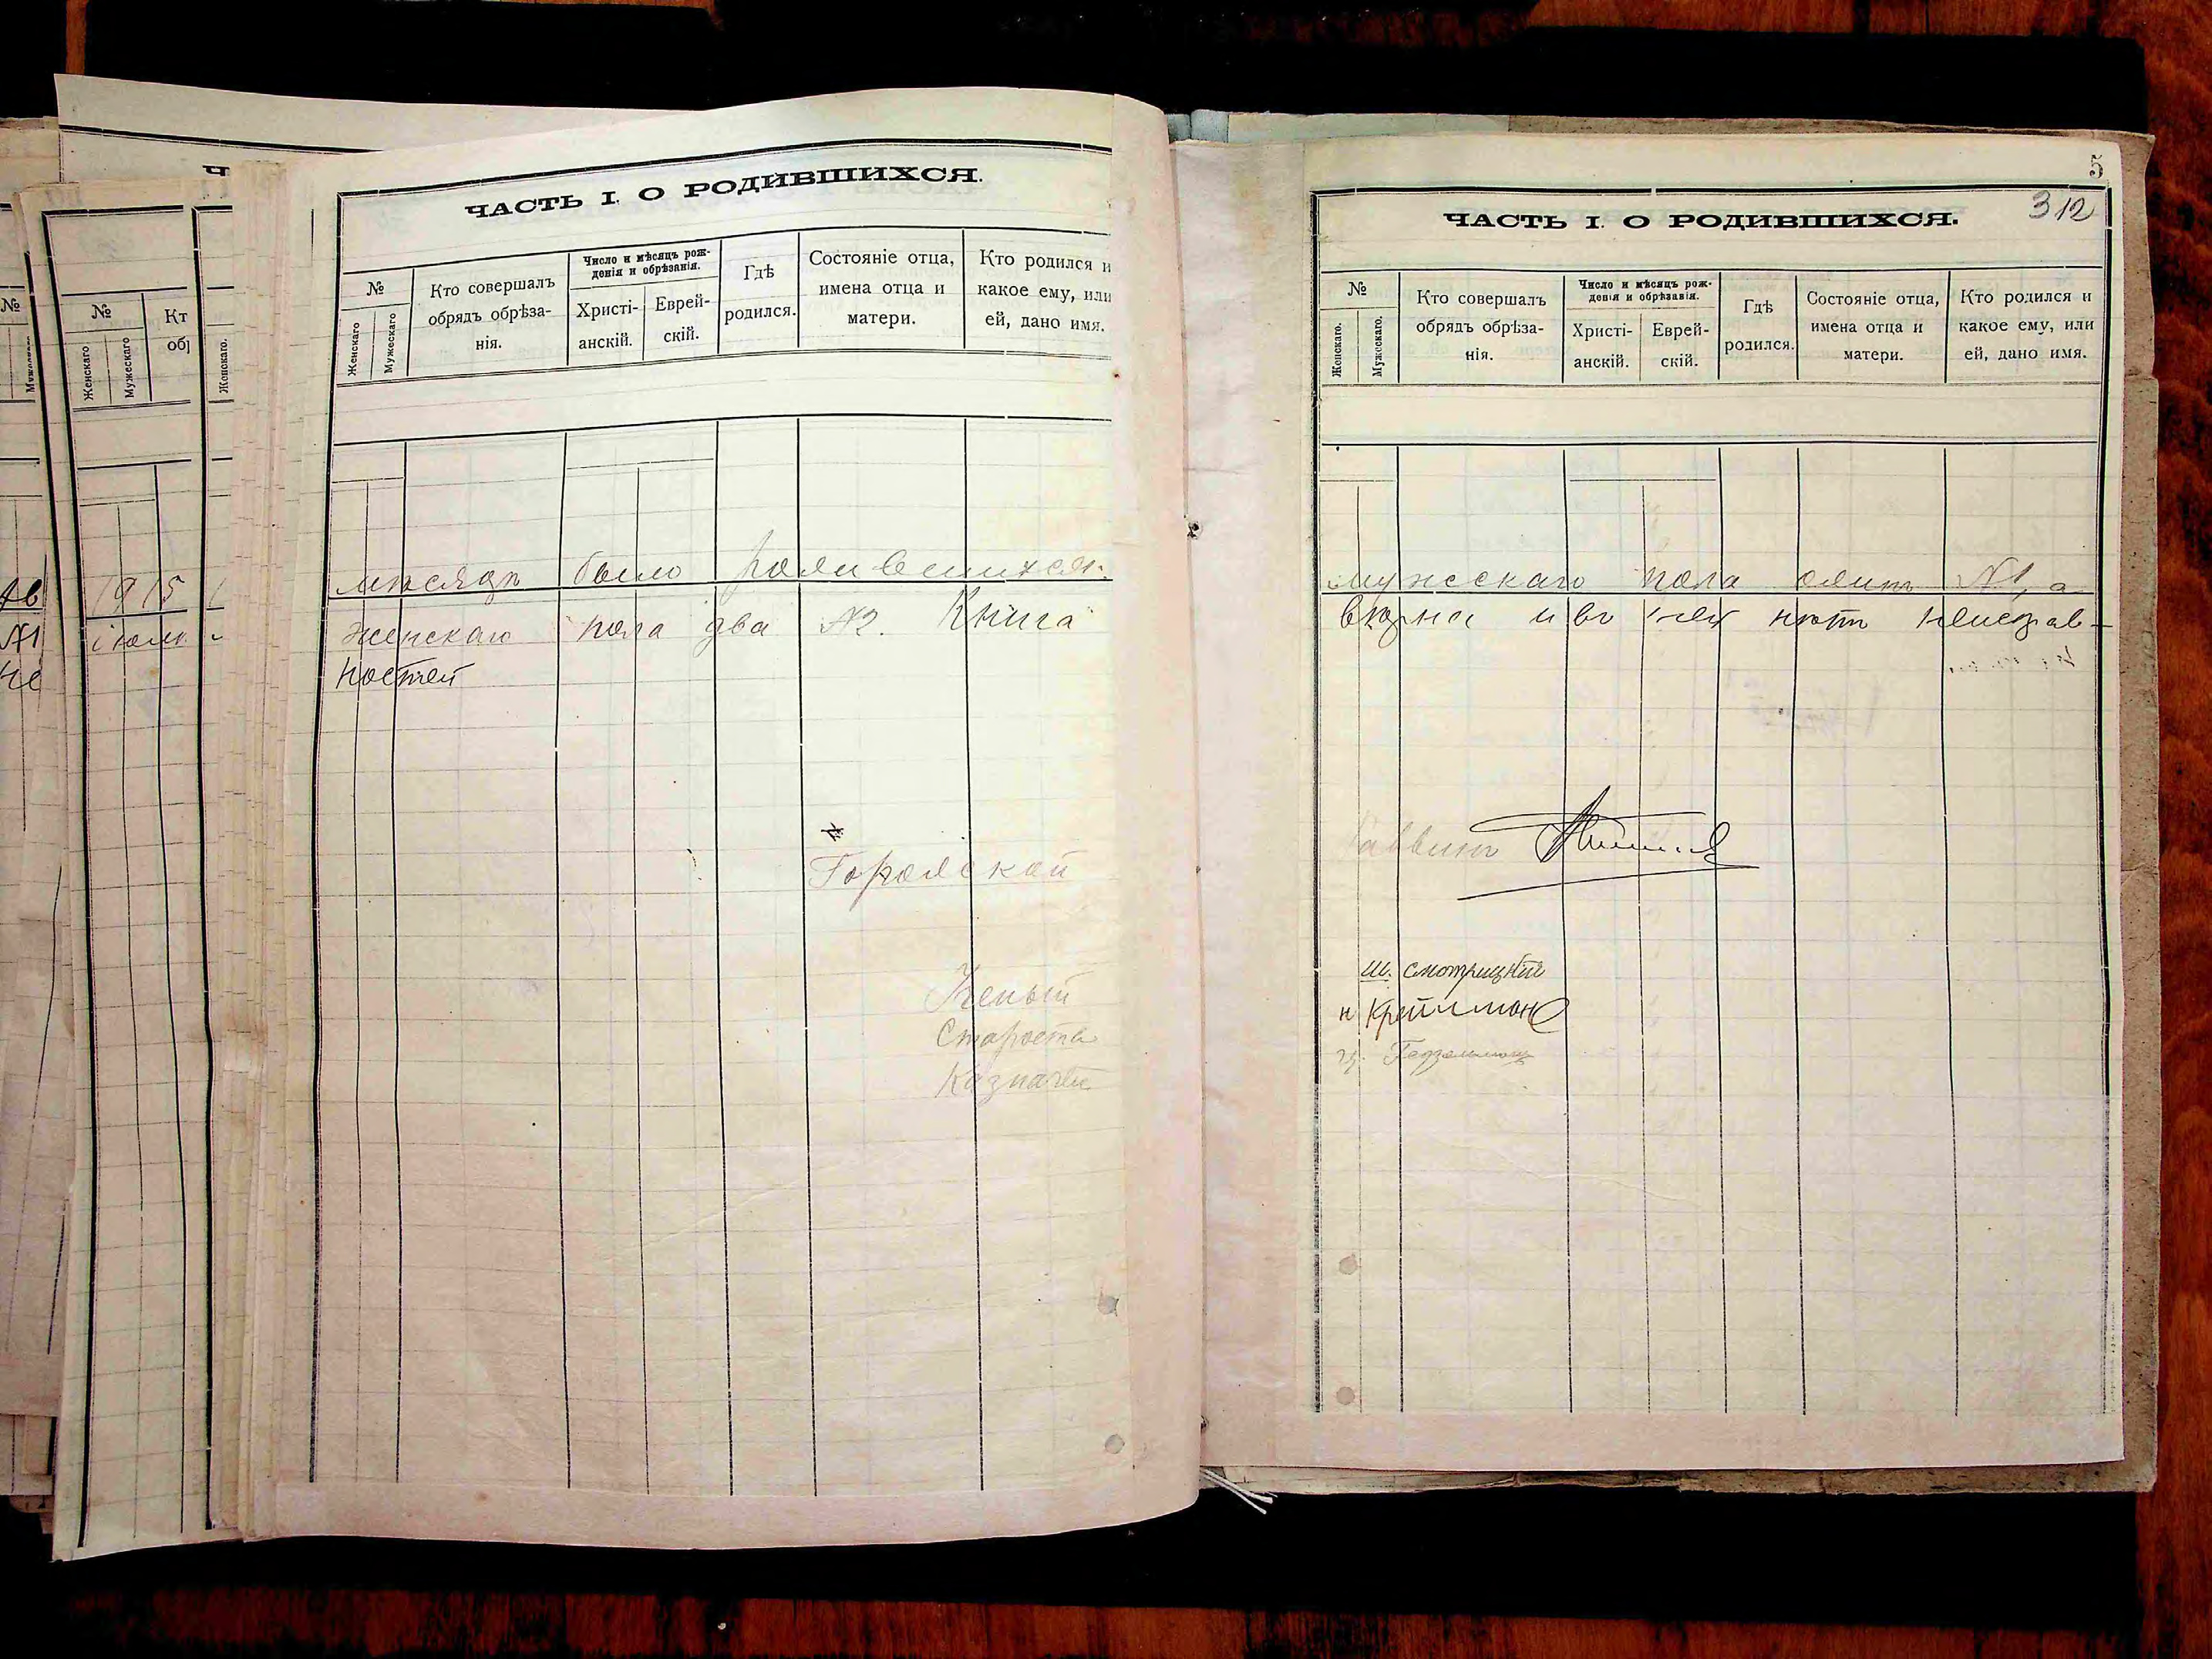 №
Мужескаго
Ав
№1
не
№
Женскаго
Мужескаго
Кт
обј
1915
іюля
Женскаго.
ЧАСТЬ I. О РОДИВШИХСЯ.
№
Женскаго
Мужескаго
Кто совершалъ
обрядъ обрѣза-
нія.
Число и мѣсяцъ рож-
денія и обрѣзанія.
Христі-
анскій.
Еврей-
скій.
Гдѣ
родился.
Состояніе отца,
имена отца и
матери.
Кто родился и
какое ему, или
ей, дано имя.
мѣсяцъ было родившихся:
женскаго пола два №2. Книга
ностей
Городской
Ученый
Староста
Казначей
5
312
ЧАСТЬ I. О РОДИВШИХСЯ.
№
Женскаго.
Мужескаго.
Кто совершалъ
обрядъ обрѣза-
нія.
Число и мѣсяцъ рож-
денія и обрѣзанія.
Христі-
анскій.
Еврей-
скій.
Гдѣ
родился.
Состояніе отца,
имена отца и
матери.
Кто родился и
какое ему, или
ей, дано имя.
мужескаго пола одинъ №1, а
вѣрна и въ ней нѣтъ неисправ-
Раввинъ
Ш. Смотрицкій
Н Крейтманъ